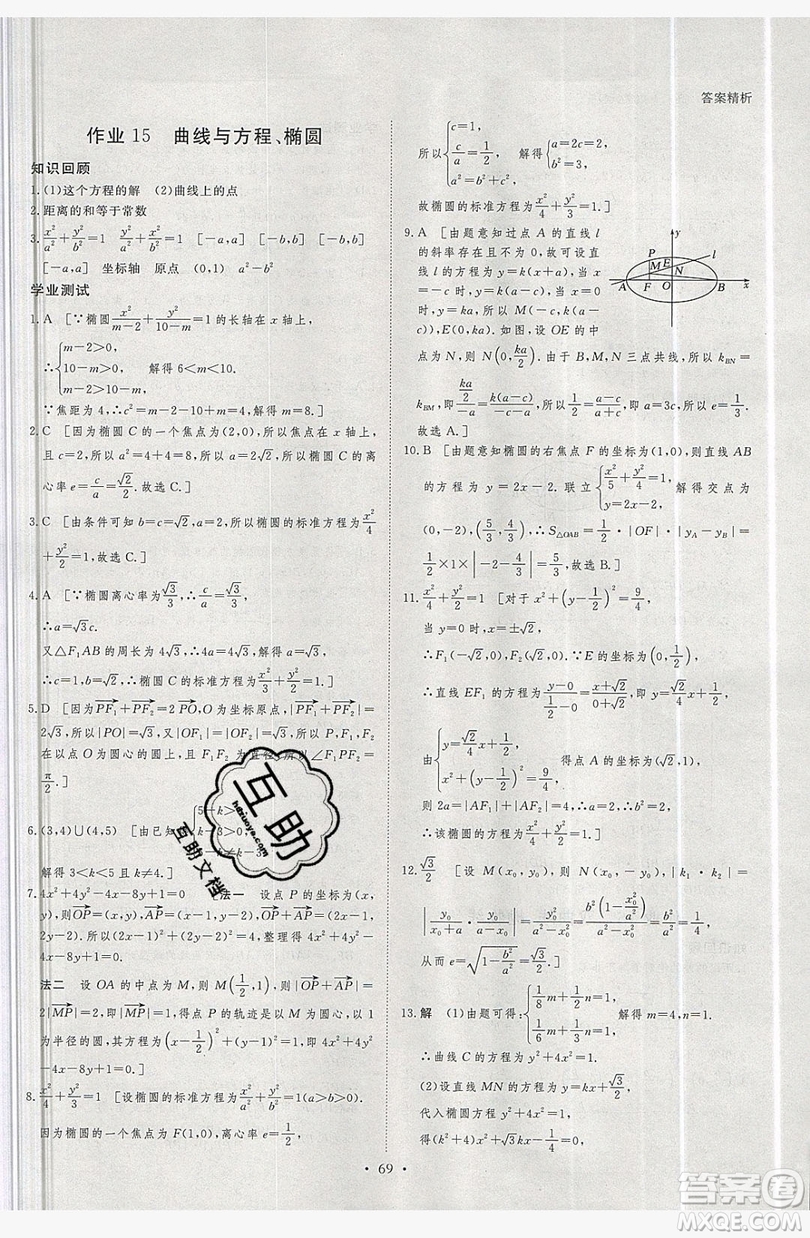 答案精析
作业 15　曲线与方程、椭圆
知识回顾
1.(1)这个方程的解　(2)曲线上的点
2.距离的和等于常数
3.x²/a²+y²/b²=1　[-a,a]　[-b,b]　[-b,b]
[-a,a]　坐标轴　原点　(0,1)　a²-b²
学业测试
1.A　[∵椭圆 x²/(m-2)+y²/(10-m)=1 的长轴在 x 轴上，
∴{m-2>0,
10-m>0,　解得 6<m<10.
m-2>10-m,
∵焦距为 4,∴c²=m-2-10+m=4,解得 m=8.]
2.C　[因为椭圆 C 的一个焦点为(2,0),所以焦点在 x 轴上,
且 c=2,所以 a²=4+4=8,所以 a=2√2,所以椭圆 C 的离
心率 e=c/a=√2/2.故选 C.]
3.C　[由条件可知 b=c=√2,a=2,所以椭圆的标准方程为 x²/4
+y²/2=1,故选 C.]
4.A　[∵椭圆离心率为 √3/3,∴c/a=√3/3,
∴a=√3c.
又△F₁AB 的周长为 4√3,∴4a=4√3,解得 a=√3,
∴c=1,b=√2,∴椭圆 C 的方程为 x²/3+y²/2=1.]
5.D　[因为PF₁+PF₂=2PO,O 为坐标原点,|PF₁+PF₂|=
2√3,所以|PO|=√3,又|OF₁|=|OF₂|=√3,所以 P,F₁,F₂
在以点 O 为圆心的圆上,且 F₁F₂ 为直径,所以∠F₁PF₂=
π/2.]
6.(3,4)∪(4,5)　[由已知
解得 3<k<5 且 k≠4.]
7.4x²+4y²-4x-8y+1=0　法一　设点 P 的坐标为(x,
y),则OP=(x,y),AP=(x-1,y-2),OP+AP=(2x-1,
2y-2).所以(2x-1)²+(2y-2)²=4,整理得 4x²+4y²-
4x-8y+1=0.
法二　设 OA 的中点为 M,则 M(1/2,1),|OP+AP|=
2|MP|=2,即|MP|=1,得点 P 的轨迹是以 M 为圆心,以 1
为半径的圆,方程为(x-1/2)²+(y-1)²=1,即 4x²+4y²-
4x-8y+1=0.]
8.x²/4+y²/3=1　[设椭圆的标准方程为 x²/a²+y²/b²=1(a>b>0),
因为椭圆的一个焦点为 F(1,0),离心率 e=1/2,
所以{c=1,
c/a=1/2,　解得{a=2,
a²=b²+c²,
b=√3,
c=1,
故椭圆的标准方程为 x²/4+y²/3=1.]
9.A　[由题意知过点 A 的直线 l
的斜率存在且不为 0,故可设
直线 l 的方程为 y=k(x+a),当
x=-c 时,y=k(a-c),当 x=0
时,y=ka,所以 M(-c,k(a-
c)),E(0,ka).如图,设 OE 的中
y
P
M
E
l
N
A
F
O
B
x
点为 N,则 N(0,ka/2).由于 B,M,N 三点共线,所以 k_BN=
k_BM,即 (ka/2)/(-a)=k(a-c)/(-c-a),所以 1/2=(a-c)/(a+c),即 a=3c,所以 e=1/3.
故选 A.]
10.B　[由题意知椭圆的右焦点 F 的坐标为(1,0),则直线 AB
的方程为 y=2x-2. 联立{x²/5+y²/4=1,
y=2x-2,　解得交点为
(0,-2),(5/3,4/3),∴S△OAB=1/2·|OF|·|y_A-y_B|=
1/2×1×|-2-4/3|=5/3,故选 B.]
11.x²/4+y²/2=1　[对于 x²+(y-1/2)²=9/4,
当 y=0 时,x=±√2,
∴F₁(-√2,0),F₂(√2,0).∵E 的坐标为(0,1/2),
∴直线 EF₁ 的方程为 (y-0)/(1/2-0)=(x+√2)/(0+√2),即 y=√2/4x+1/2.
由{y=√2/4x+1/2,
x²+(y-1/2)²=9/4,　得点 A 的坐标为(√2,1),
则 2a=|AF₁|+|AF₂|=4,∴a=2,∴b²=2,
∴该椭圆方程为 x²/4+y²/2=1.]
12.√3/2　[设 M(x₀,y₀),则
|y₀/(x₀+a)|·|y₀/(x₀-a)|=y₀²/(a²-x₀²)=b²(1-x₀²/a²)/(a²-x₀²)=b²/a²=1/4,
从而 e=√(1-b²/a²)=√3/2.]
13.解　(1)由题可得:{1/8m+1/2n=1,
1/6m+1/3n=1,　解得 m=4,n=1.
∴曲线 C 的方程为 y²+4x²=1.
(2)设直线 MN 的方程为 y=kx+√3/2,
代入椭圆方程 y²+4x²=1,
得(k²+4)x²+√3kx-1/4=0,
• 69 •
互助
hezuoye.com
互助文档
答案圈
MXQE.COM